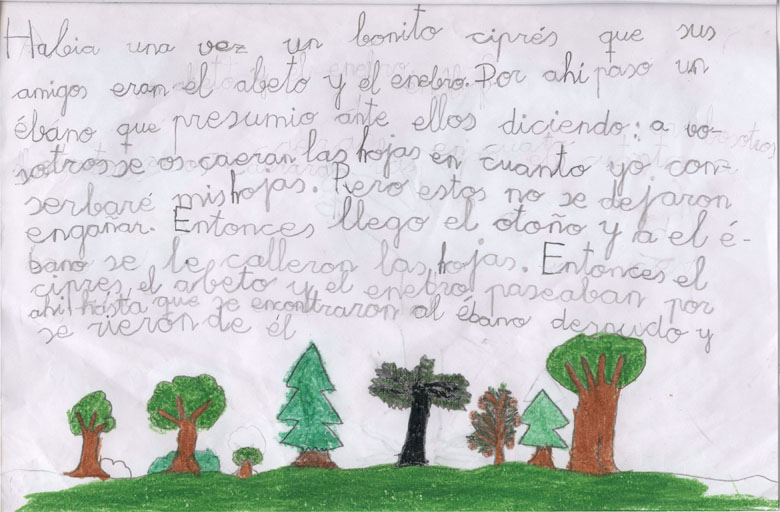 Habia una vez un bonito ciprés que sus
amigos eran el abeto y el enebro. Por ahi paso un
ébano que presumio ante ellos diciendo: a vo-
sotros se os caeran las hojas en cuanto yo con-
serbaré mis hojas. Pero estos no se dejaron
engañar. Entonces llego el otoño y a el é-
bano se le calleron las hojas. Entonces el
cipres, el abeto y el enebro paseaban por
ahi hasta que se encontraron al ébano desnudo y
se rieron de él